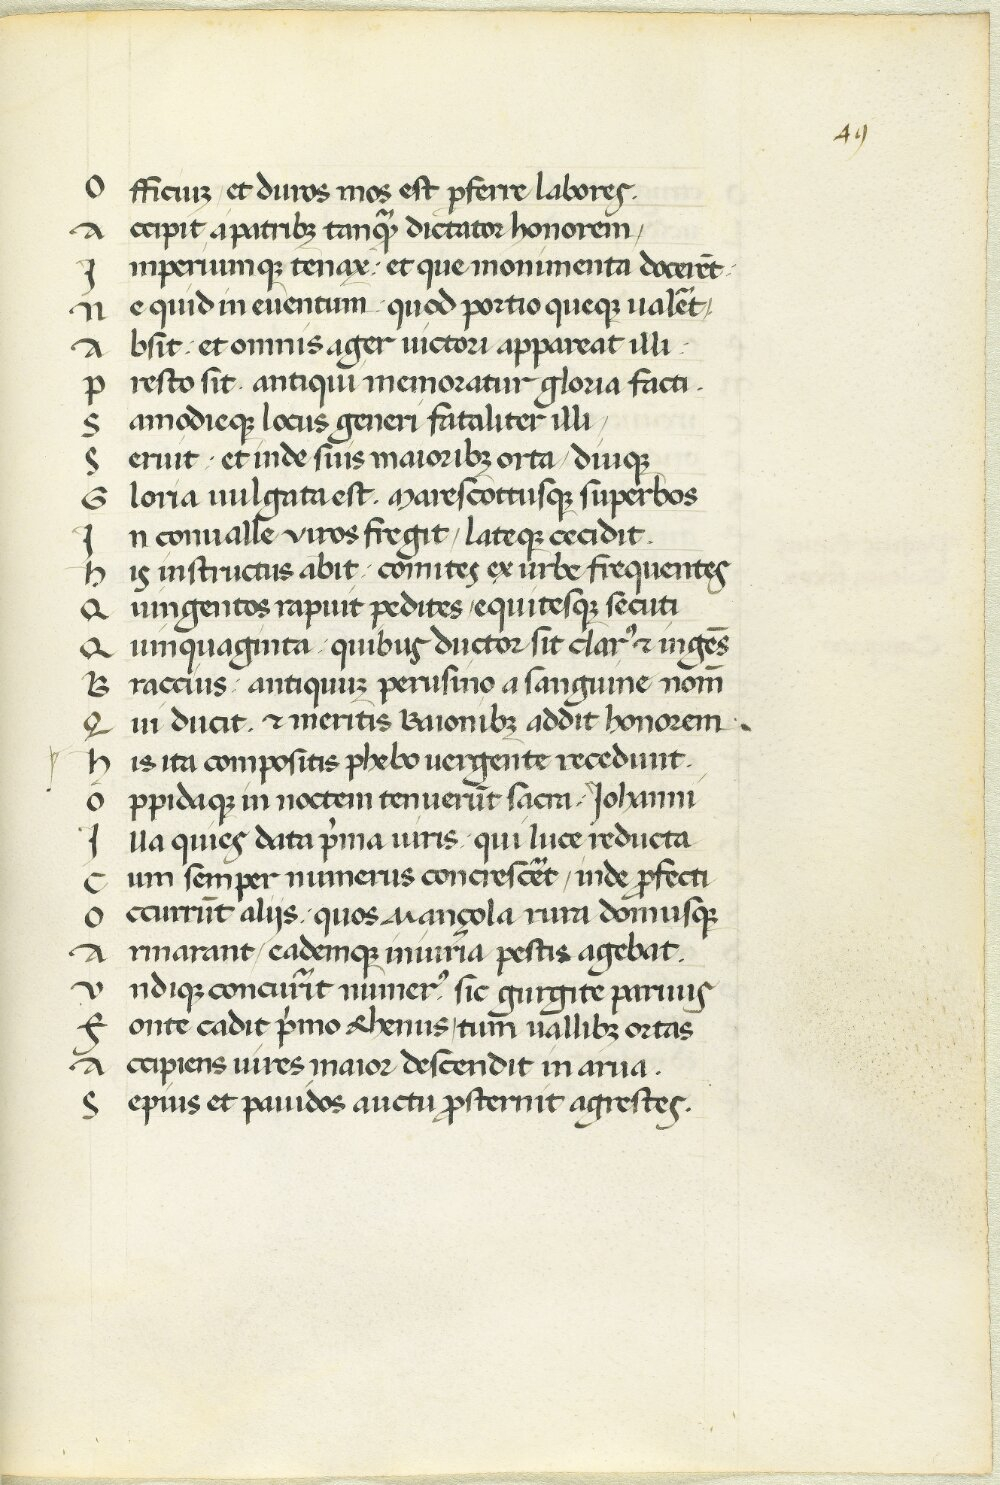 49
O fficiuꝫ / et duros mos est ꝑferre labores.
A ccipit a patribꝫ tanqꝫ̃ dictator honorem /
I mperiumqꝫ tenax : et que monimenta docerẽt .
N e quid in euentum . quod portio queqꝫ ualẽt /
A bsit : et omnis ager uictori appareat illi .
P resto sit . antiqui memoratur gloria facti .
S amodieqꝫ locus generi fataliter illi /
S eruit : et inde suis maioribꝫ orta / diuqꝫ
G loria uulgata est . Marescottusqꝫ superbos
I n conualle viros fregit / lateqꝫ cecidit .
H is instructus abit : comites ex urbe frequentes
Q uingentos rapuit pedites / equitesqꝫ secuti
Q uinquaginta . quibus ductor sit clarꝰ ⁊ ingẽs
B raccius : antiquuꝫ perusino a sanguine nom̃
Q ui ducit . ⁊ meritis Baionibꝫ addit honorem .
H is ita compositis phebo uergente recedunt .
O ppidaqꝫ in noctem tenuerũt sacra . Johanni
I lla quies data pͥma uiris . qui luce reducta
C um semper numerus concrescẽt / inde ꝓfecti
O ccurrũt alijs . quos Mançola rura domusqꝫ
A rmarant / eademqꝫ iniuria pestis agebat .
V ndiqꝫ concurrit numerꝰ . sic gurgite paruus
F onte cadit pͥmo Rhenus / tum uallibꝫ ortas
A ccipiens uires maior descendit in arua .
S epius et pauidos auctu ꝓsternit agrestes .